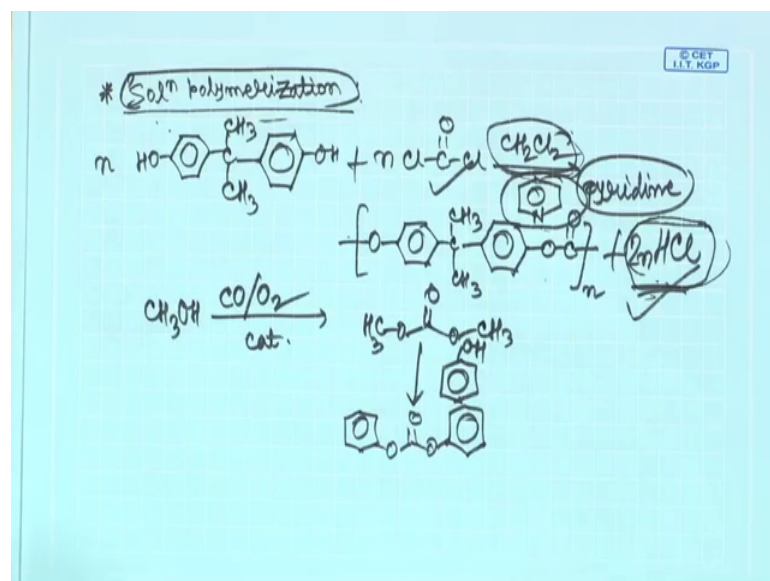 © CET
I.I.T. KGP
* Solⁿ polymerization
n HO CH3 C CH3 OH + n Cl-C-Cl O CH2Cl2
pyridine
N
O CH3 C CH3 O-C O n + 2nHCl
CH3OH CO/O2 cat.
H3C O O O CH3
OH
O O O